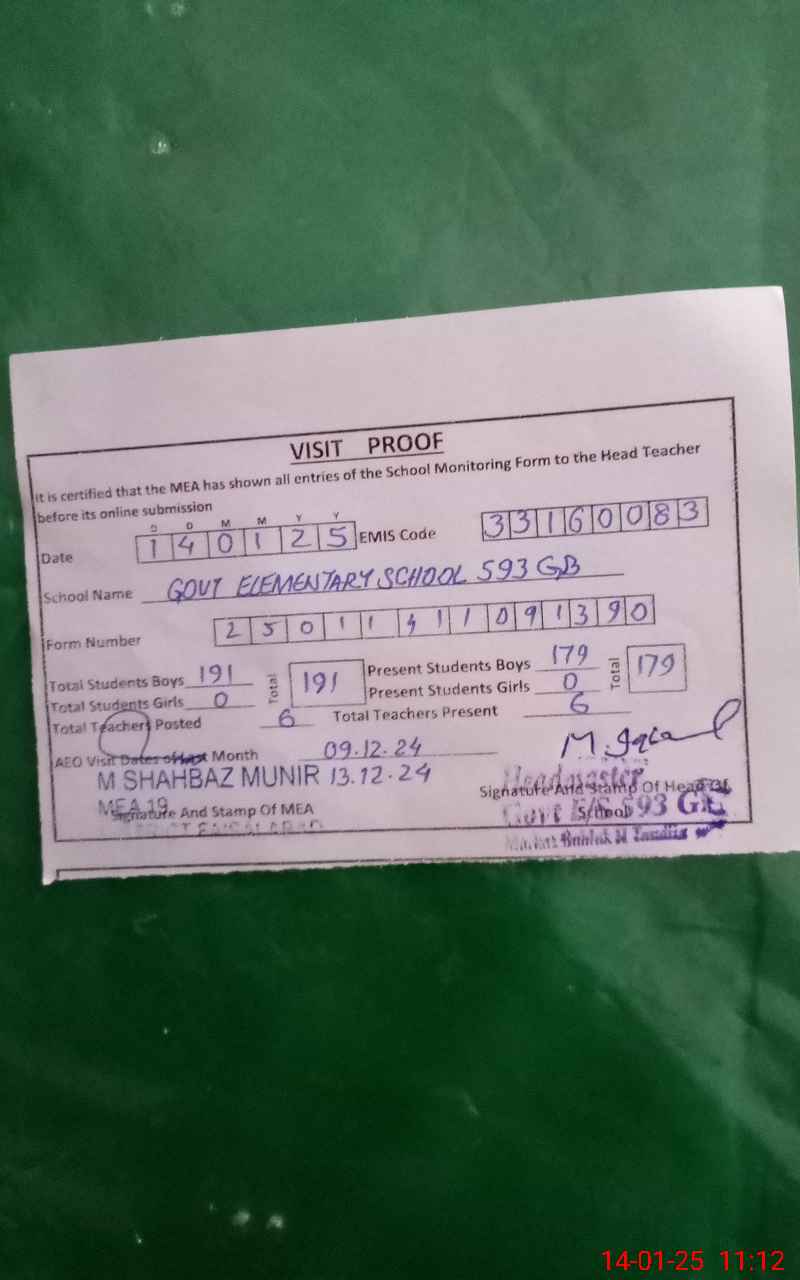 VISIT PROOF
It is certified that the MEA has shown all entries of the School Monitoring Form to the Head Teacher
before its online submission
D D M M Y Y
Date 1 4 0 1 2 5 EMIS Code 3 3 1 6 0 0 8 3
School Name GOVT ELEMENTARY SCHOOL 593 GB
Form Number 2 5 0 1 1 4 1 1 0 9 1 3 9 0
Total Students Boys 191 Total 191 Present Students Boys 179 Total 179
Total Students Girls 0 Present Students Girls 0
Total Teachers Posted 6 Total Teachers Present 6
AEO Visit Dates of Last Month 09.12.24
M. Iqbal
M SHAHBAZ MUNIR 13.12.24
Headmaster
MEA 19
Signature And Stamp Of MEA
Signature And Stamp Of Head Of
School
Govt E/S 593 GB
DISTRICT FAISALABAD
14-01-25 11:12